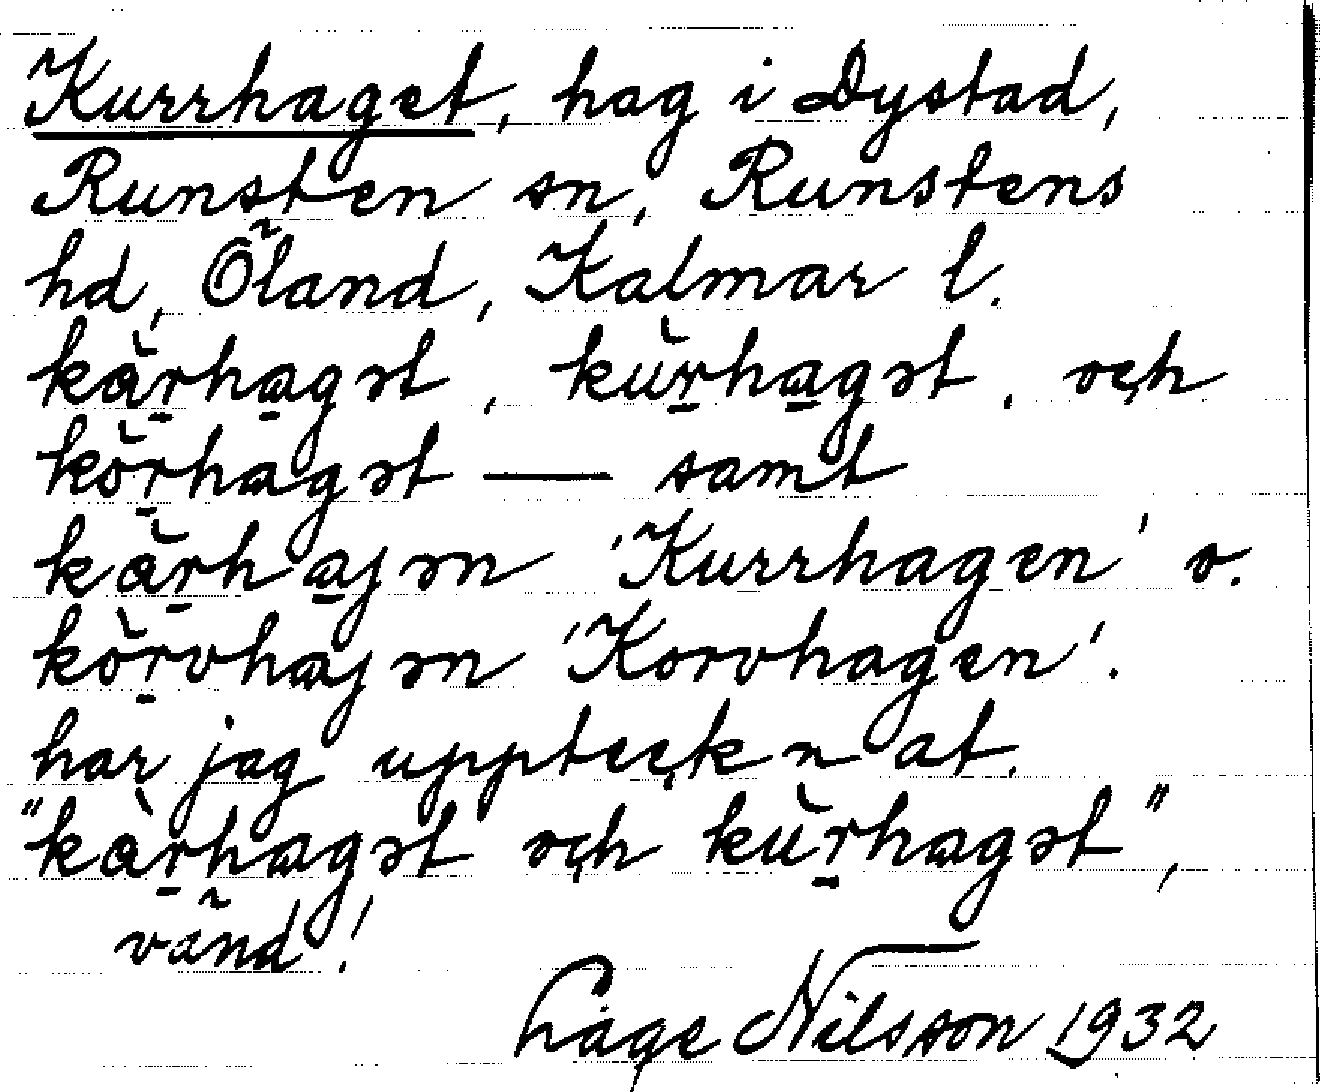 Kurrhaget, hag i Dystad,
Runsten sn, Runstens
hd, Öland, Kalmar l.
kàr̠ha̠gət, kùr̠ha̠gət, och
kòr̠hagət — samt
kàr̠ha̠jən 'Kurrhagen' o.
kòr̠vhajən 'Korvhagen'.
har jag uppteçknat.
"kàr̠hagət och kùr̠hagət",
vänd!
Låge Nilsson 1932